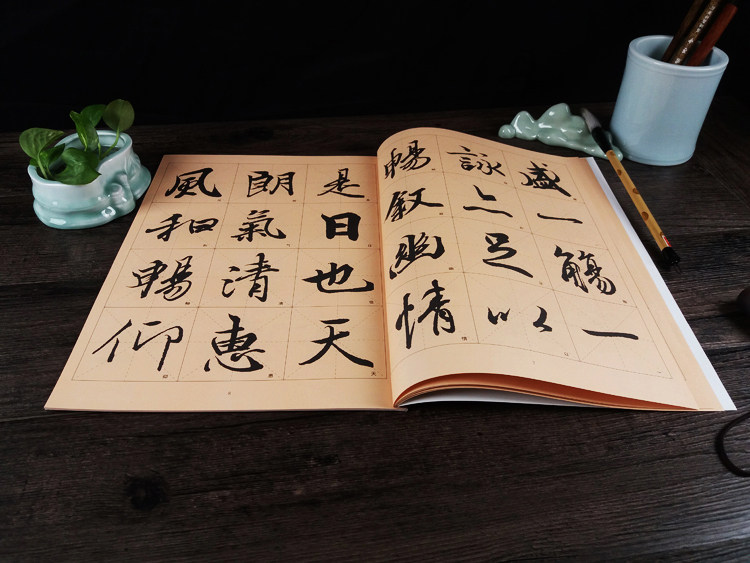 盛一觴一
詠亦足以
暢敘幽情
是日也天
朗氣清惠
風和暢仰